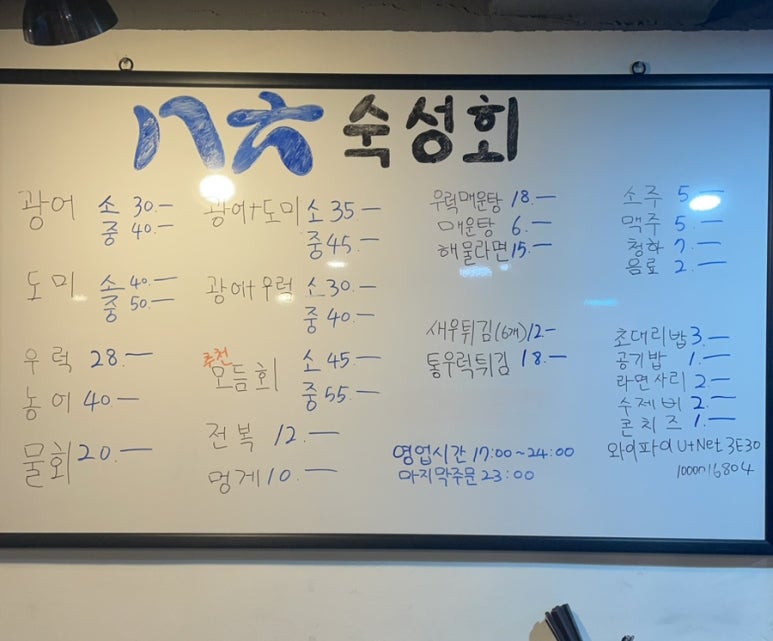 八六 숙성회
광어 소 30.—
중 40.—
도미 소 40.—
중 50.—
우럭 28.—
농어 40.—
물회 20.—
광어+도미 소 35.—
중 45.—
광어+우럭 소 30.—
중 40.—
추천
모듬회 소 45.—
중 55.—
전복 12.—
멍게 10.—
우럭매운탕 18.—
매운탕 6.—
해물라면 15.—
새우튀김(6개) 12.—
통우럭튀김 18.—
영업시간 17:00~24:00
마지막주문 23:00
소주 5.—
맥주 5.—
청하 7.—
음료 2.—
초대리밥 3.—
공기밥 1.—
라면사리 2.—
수제비 2.—
콘치즈 1.—
와이파이 U+Net3E30
1000716804